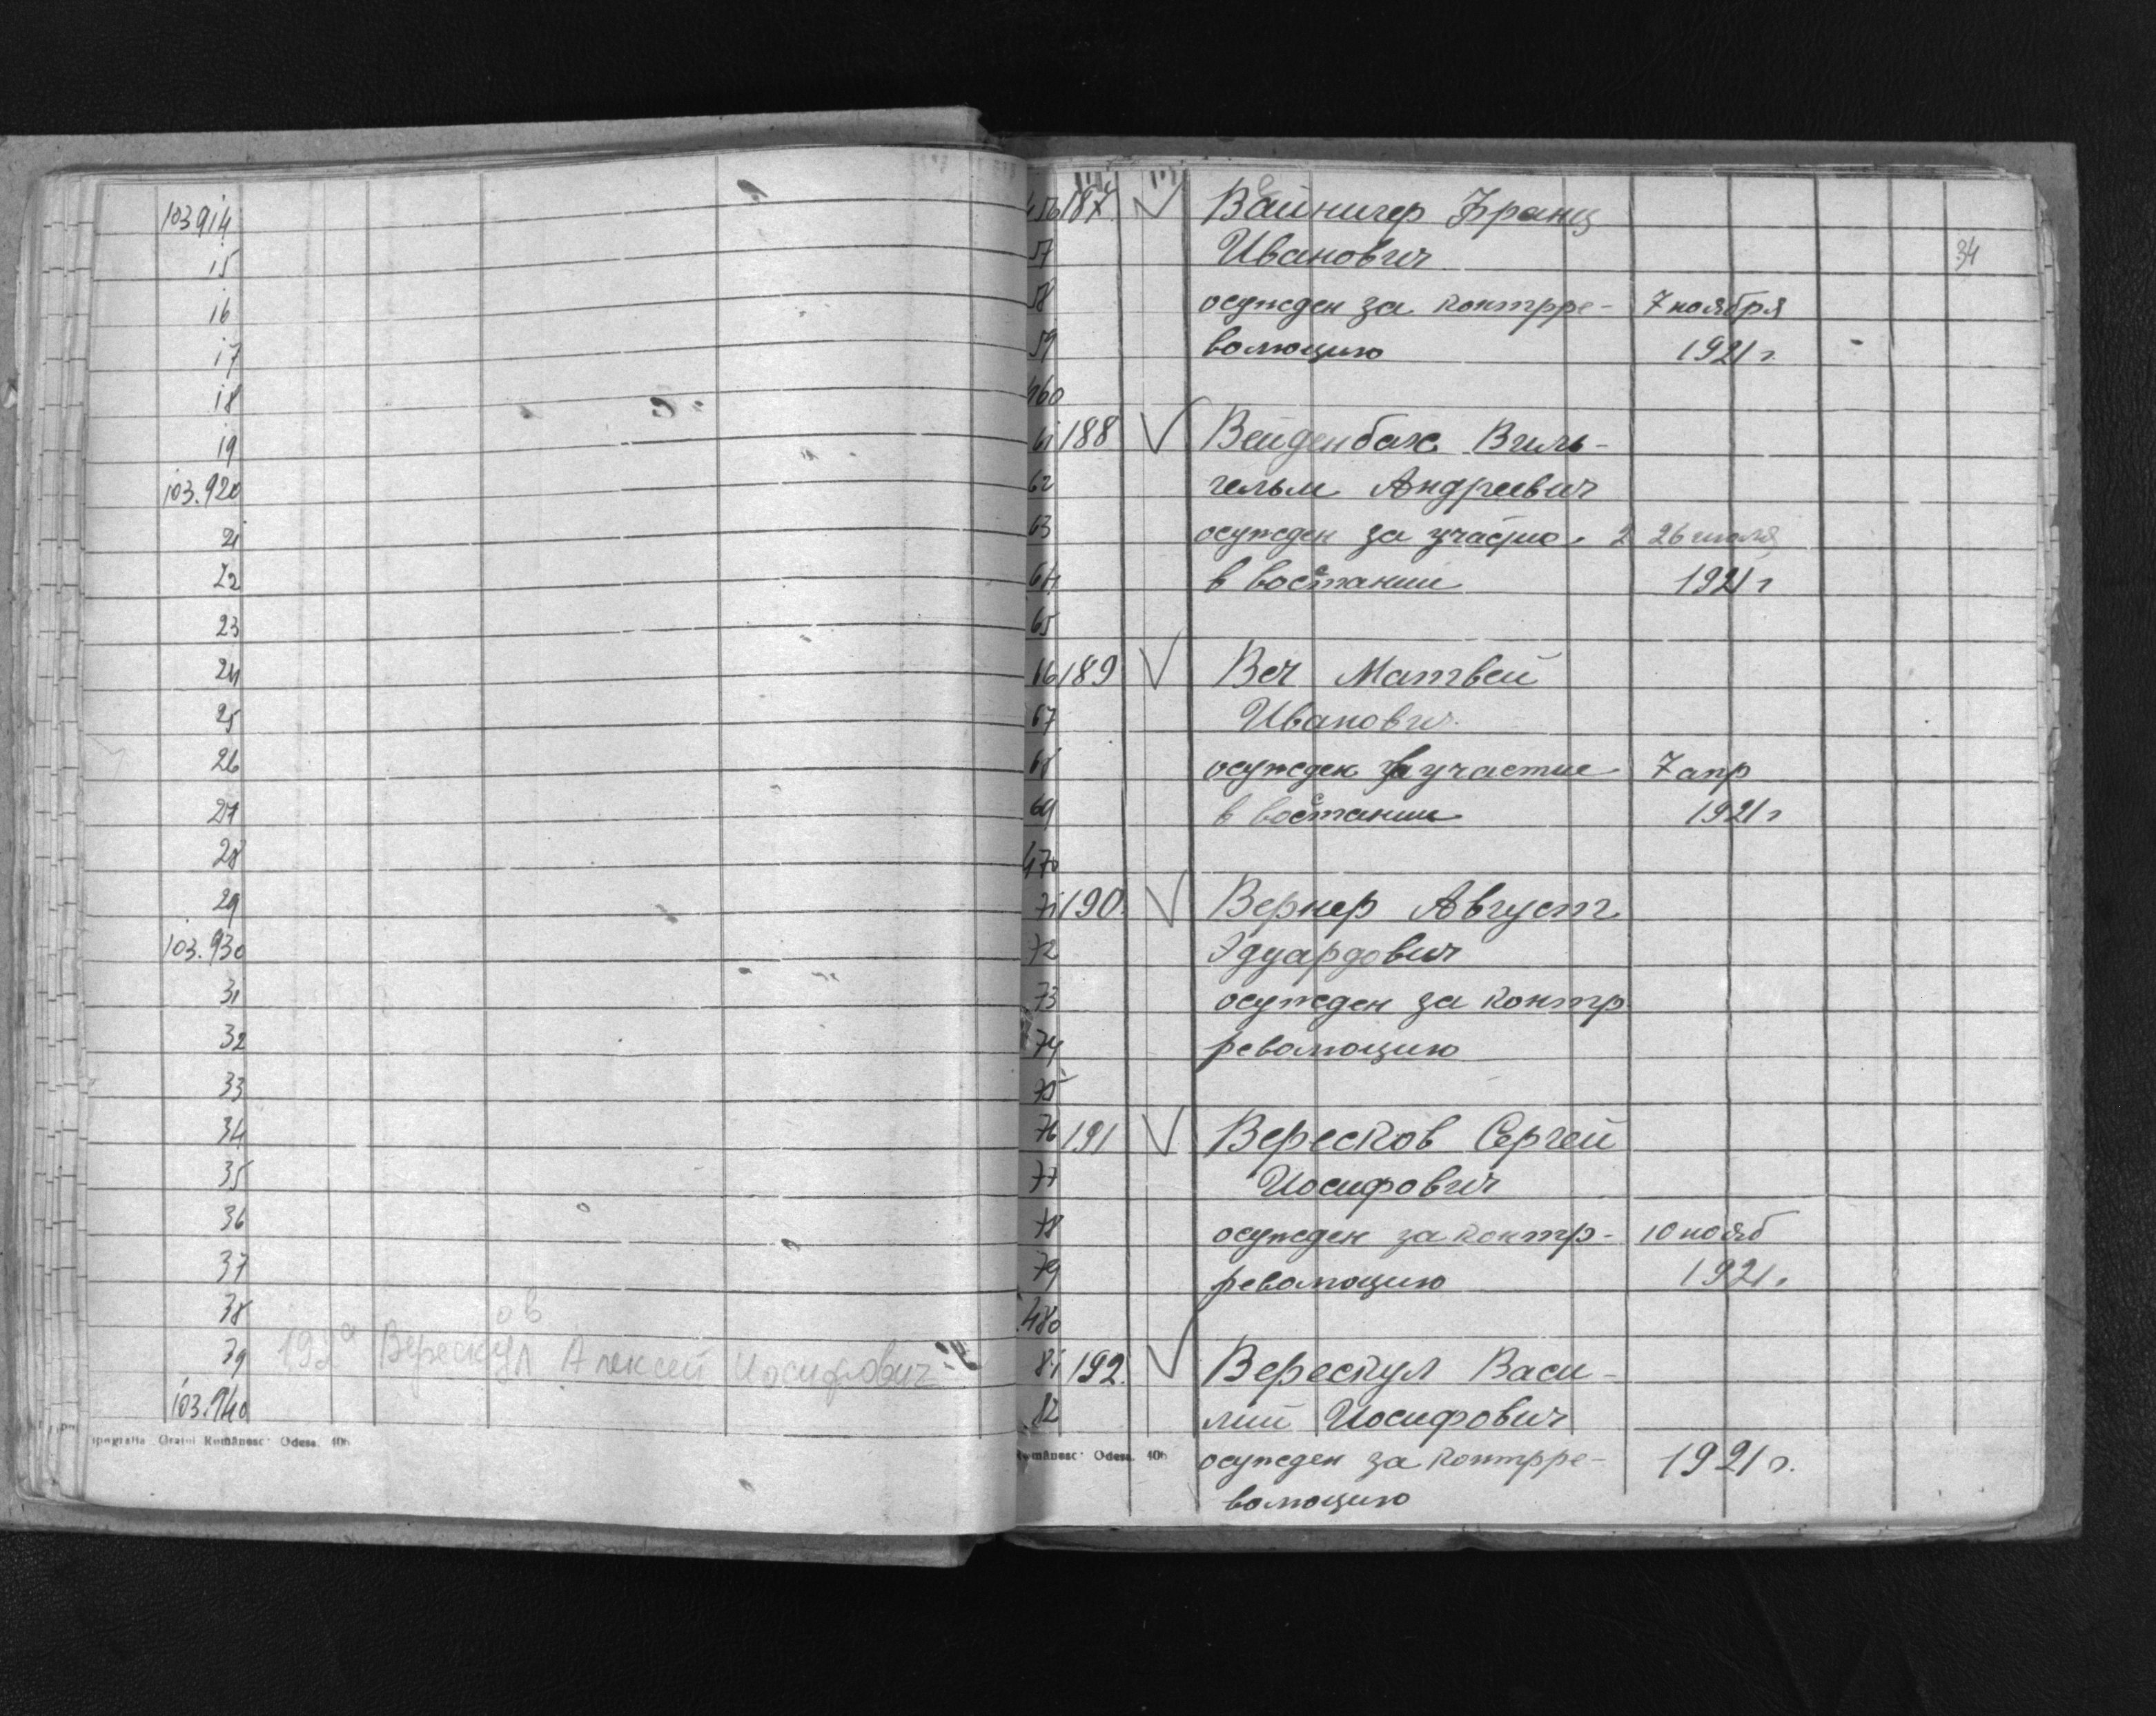 103914
15
16
17
18
19
103.920
21
22
23
24
25
26
27
28
29
103.930
31
32
33
34
35
36
37
38
ов
39 192а Верескул Алексей Иосифович
103.940
Românesc Odesa. 406
34
456 187. Вайнигер Франц
е
57 Иванович
58 осужден за контрре- 7 ноября
59 волюцию 1921 г
460
61 188 Вейденбах Виль-
62 гельм Андреевич
63 осужден за участие 26 июля
64 в востании 1921 г
с
65
66 189 Веч Матвей
67 Иванович
68 осужден за участие 7 апр
69 в востании 1921 г
с
470
71 190. Вернер Август
72 Эдуардович
73 осужден за контр
74 революцию
75
76 191 Вересков Сергей
77 Иосифович
78 осужден за контр- 10 нояб
79 революцию 1921.
480
81 192. Верескул Васи-
82 лий Иосифович
Românesc Odesa. 406 осужден за контрре- 1921 г.
волюцию